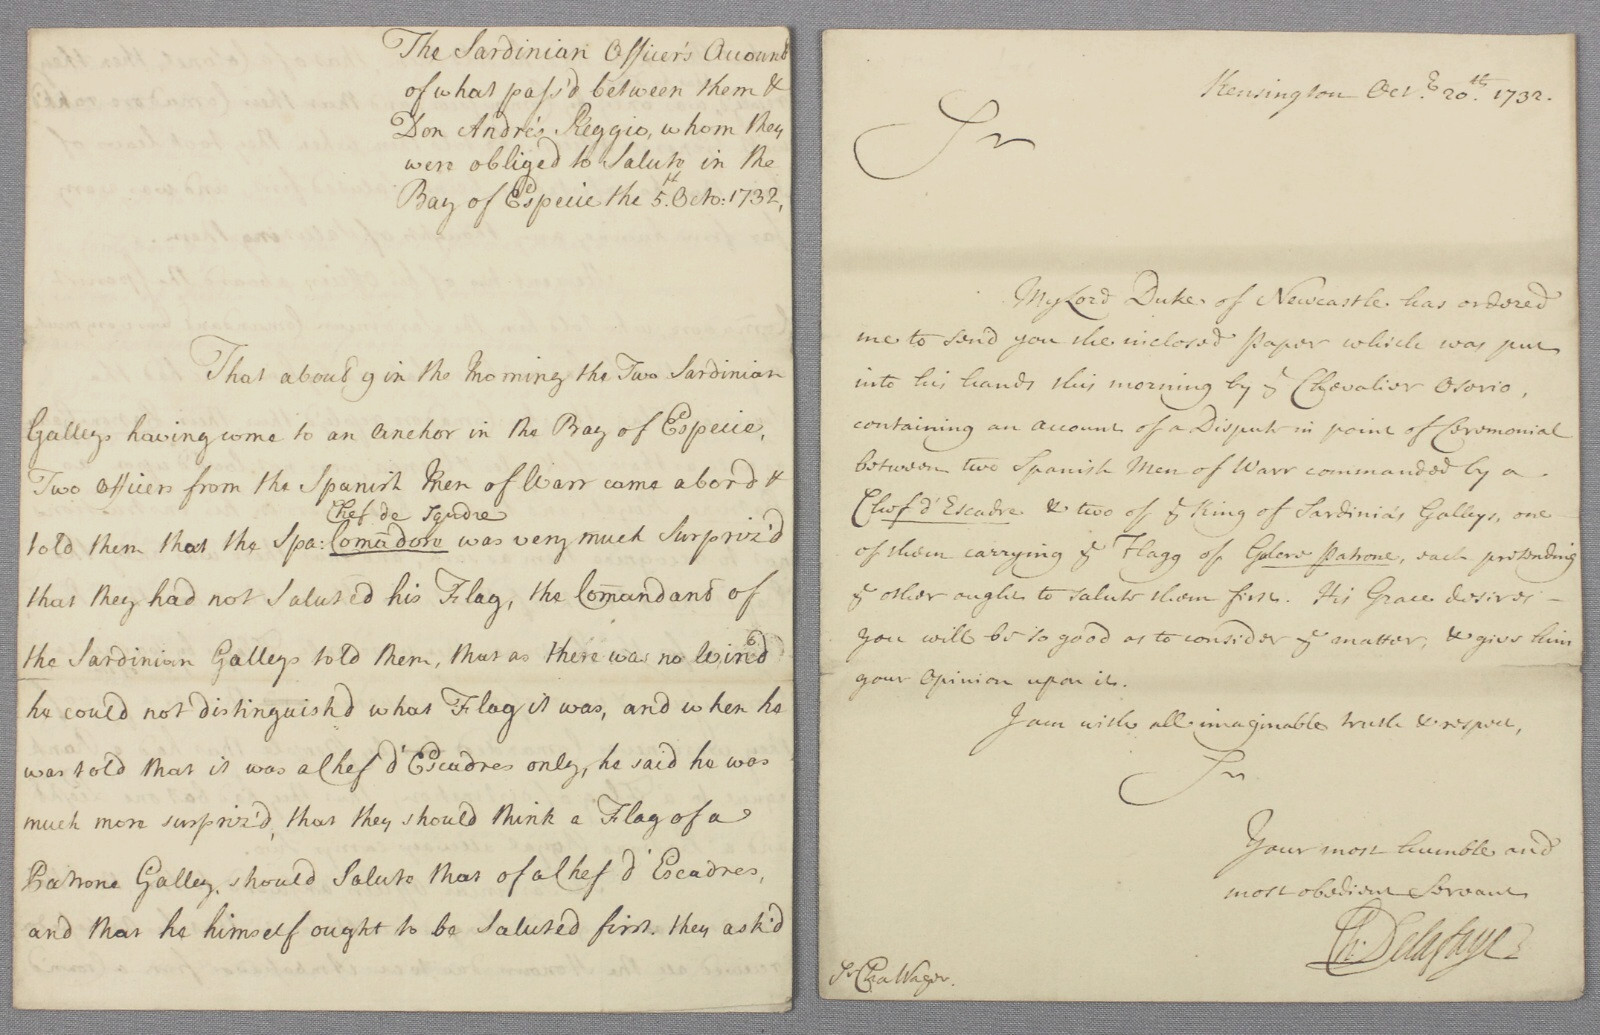 The Sardinian Officer's Account
of what pass'd between them &
Don Andrés Reggio, whom they
were obliged to Salute in the
Bay of Especie the 5.th Octo: 1732,
That about 9 in the Morning the Two Sardinian
Galleys having come to an anchor in the Bay of Especie,
Two officers from the Spanish Men of Warr came abord &
Chef de Squdre
told them that the Spa: Comādore was very much Surpriz'd
that they had not Saluted his Flag, the Comandant of
the Sardinian Galleys told them, that as there was no Wind
he could not distinguish'd what Flag it was, and when he
was told that it was a Chef d'Escadres only, he said he was
much more surpriz'd, that they should think a Flag of a
Patrone Galley, should Salute that of a Chef d'Escadres,
and that he himself ought to be Saluted first. they ask'd
Kensington Oct.r 20.th 1732.
Sr
My Lord Duke of Newcastle has ordered
me to send you the inclosed Paper which was put
into his hands this morning by ye Chevalier Osorio,
containing an account of a Dispute in point of Ceremonial
between two Spanish Men of Warr commanded by a
Chef d'Escadre & two of ye King of Sardinia's Galleys, one
of them carrying ye Flagg of Galere Patrone, each pretending
ye other ought to salute them first. His Grace desires
you will be so good as to consider ye matter, & give him
your Opinion upon it.
I am with all imaginable truth & respect,
Sr
Your most humble and
most obedient Servant
Ch: Delafaye
Sr Cha Wager.